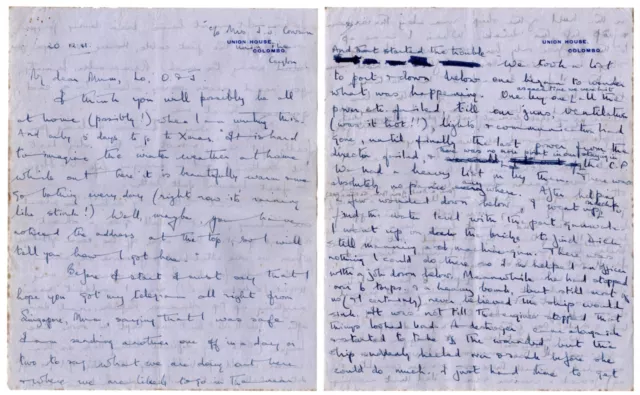 c/o Mrs. J. S. Cowan
UNION HOUSE,
COLOMBO.
20.12.41.
Ceylon
My dear Mum,
I think you will possibly be all
at home (possibly!) when I am writing this.
And only 5 days to go to Xmas. It is hard
to imagine the winter weather at home,
while out here it is beautifully warm now
Go bathing every day (right now it's running
like stink!) Well, maybe you have
noticed the address at the top, so I will
tell you how I got here.
Before I start I must say that I
hope you got my telegram all right from
Singapore, Mum, saying that I was safe.
I am sending another one off in a day or
two to say what we are doing out here
& where we are likely to go in the near
UNION HOUSE,
COLOMBO.
And that started the trouble
We took a list
to port, & down below one began to wonder
what was happening. One by one, all the
power etc failed till our guns, ventilation
(was it hot!!), lights & communication had
gone, until, finally the last power from the
director failed, &
We had a heavy list by this time. There was
absolutely no panic anywhere. After helping
a few wounded down below, I went up
& found the water level with the port quarterdeck
I went up on deck to the bridge to find Dick
tell me
nothing I could do there so I helped an officer
with a job down below. Meanwhile he had stopped
over 6 torps. & a heavy bomb, but still most
us (& I certainly) never believed the ship would
sink. It was not till the engines stopped that
things looked bad. A destroyer came alongside
& started to take off the wounded, but the
ship suddenly heeled over & sank before she
could do much. I just had time to get